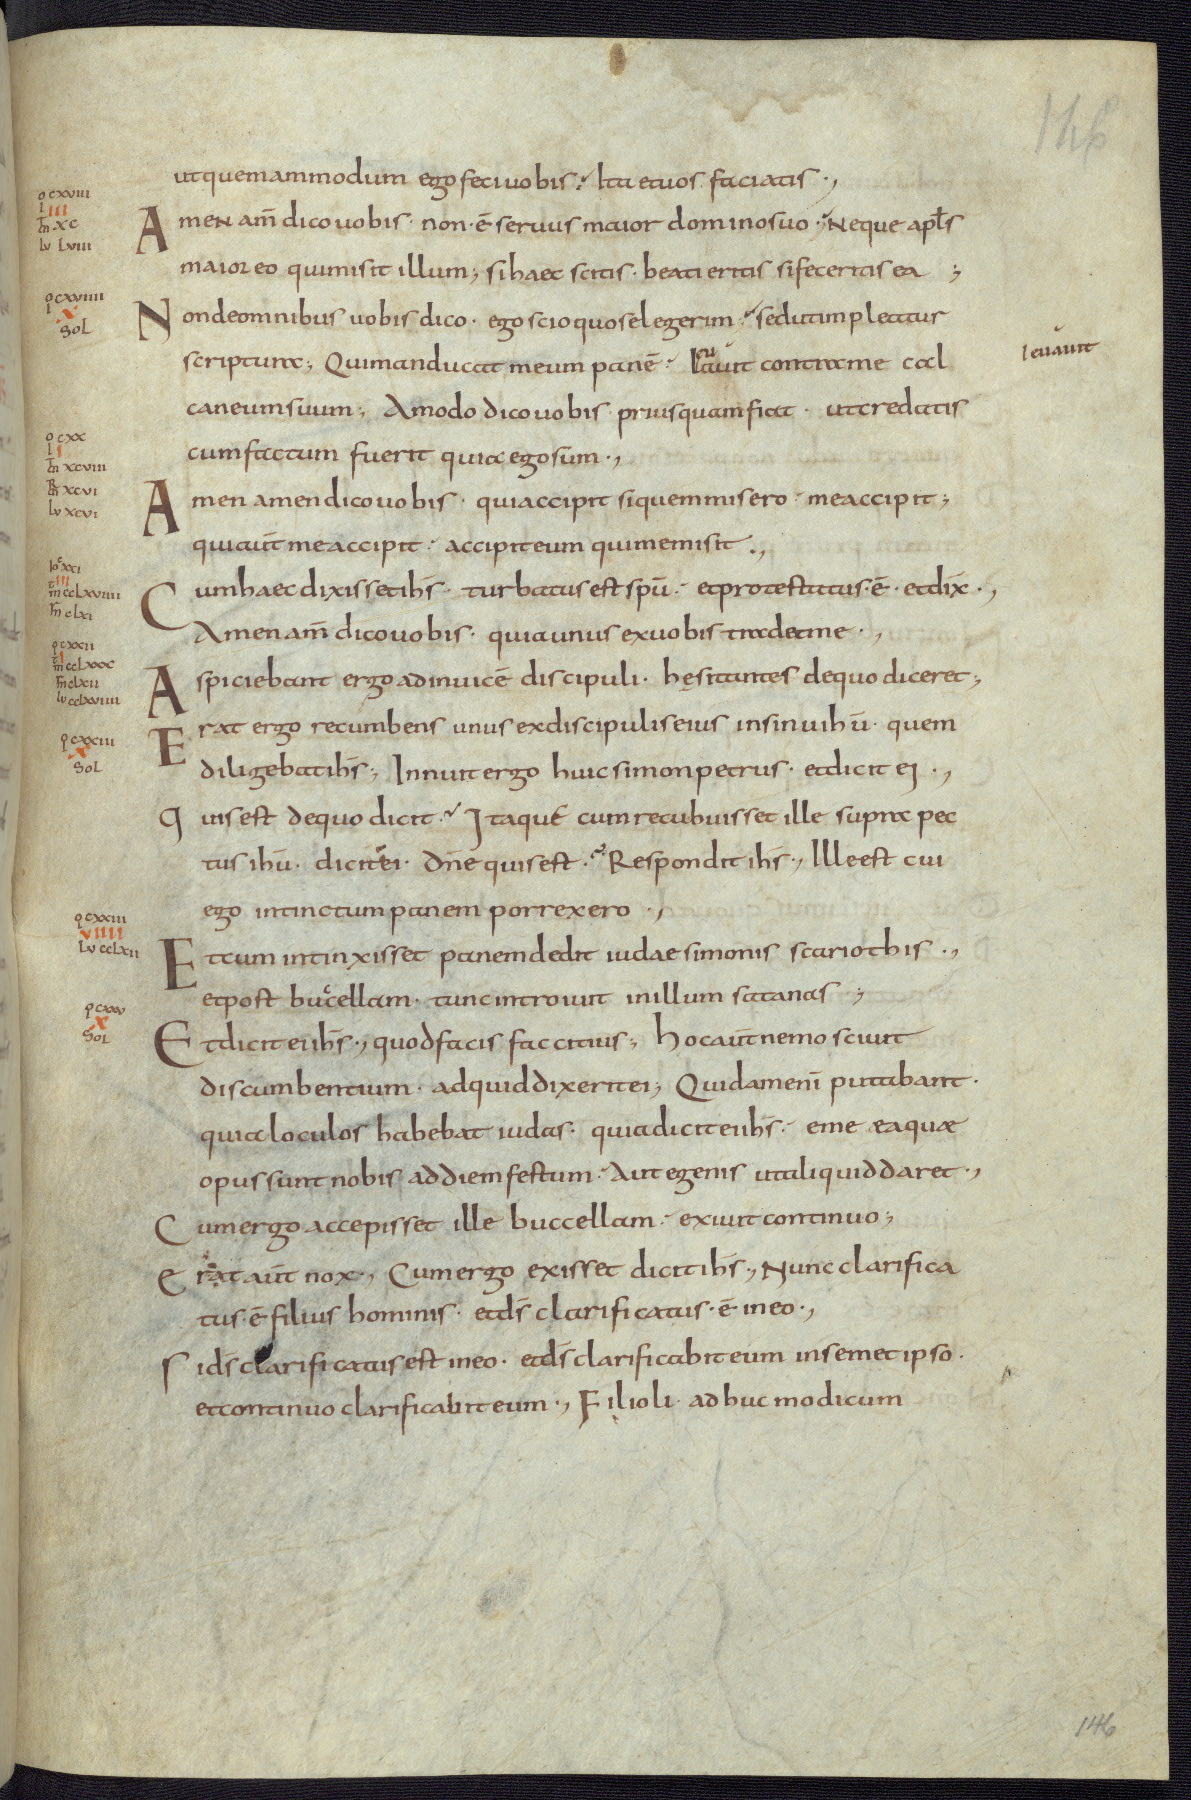 146
utquemammodum ego feci uobis; Ita et uos faciatis.,
Amen am̄ dico uobis. non. ē seruus maior domino suo; Neque apl̄s
maior eo qui misit illum; si haec scitis. beati eritis si feceritis ea;
Non de omnibus uobis dico. ego scio quos elegerim; sed ut impleatur
scriptura; Qui manducat meum panē. leuauit contra me cal
leuauit
caneum suum; Amodo dico uobis priusquam fiat. ut credatis
cum factum fuerit quia ego sum.,
Amen amen dico uobis. qui accipit si quem misero. me accipit;
qui aut̄ me accipit. accipit eum qui me misit.,
Cum haec dixisset ih̄s. turbatus est sp̄u. et protestatus. ē. et dix̄.,
Amen am̄ dico uobis. quia unus ex uobis tradet me.,
Aspiciebant ergo ad inuicē discipuli. hęsitantes de quo diceret;
Erat ergo recumbens unus ex discipulis eius in sinu ih̄u. quem
diligebat ih̄s; Innuit ergo huic simon petrus. et dicit ei.,
Quis est de quo dicit. Itaque cum recubuisset ille supra pec
tus ih̄u. dicit ei. dn̄e quis est. Respondit ih̄s., Ille est cui
ego intinctum panem porrexero.,
Et cum intinxisset panem dedit iudae simonis scariothis.,
et post buccellam. tunc introiuit in illum satanas;
Et dicit ei ih̄s., quod facis fac citius; Hoc aut̄ nemo sciuit
discumbentium. ad quid dixerit ei; Quidam enī putabant.
quia loculos habebat iudas. quia dicit ei ih̄s. eme ea quae
opus sunt nobis ad diem festum. Aut egenis ut aliquid daret.,
Cum ergo accepisset ille buccellam. exiuit continuo;
Erat aut̄ nox., Cum ergo exisset dicit ih̄s., Nunc clarifica
tus. ē filius hominis. et d̄s clarificatus. ē in eo.,
Si d̄s clarificatus est in eo. et d̄s clarificabit eum in semet ipso.
et continuo clarificabit eum., Filioli. adhuc modicum
146